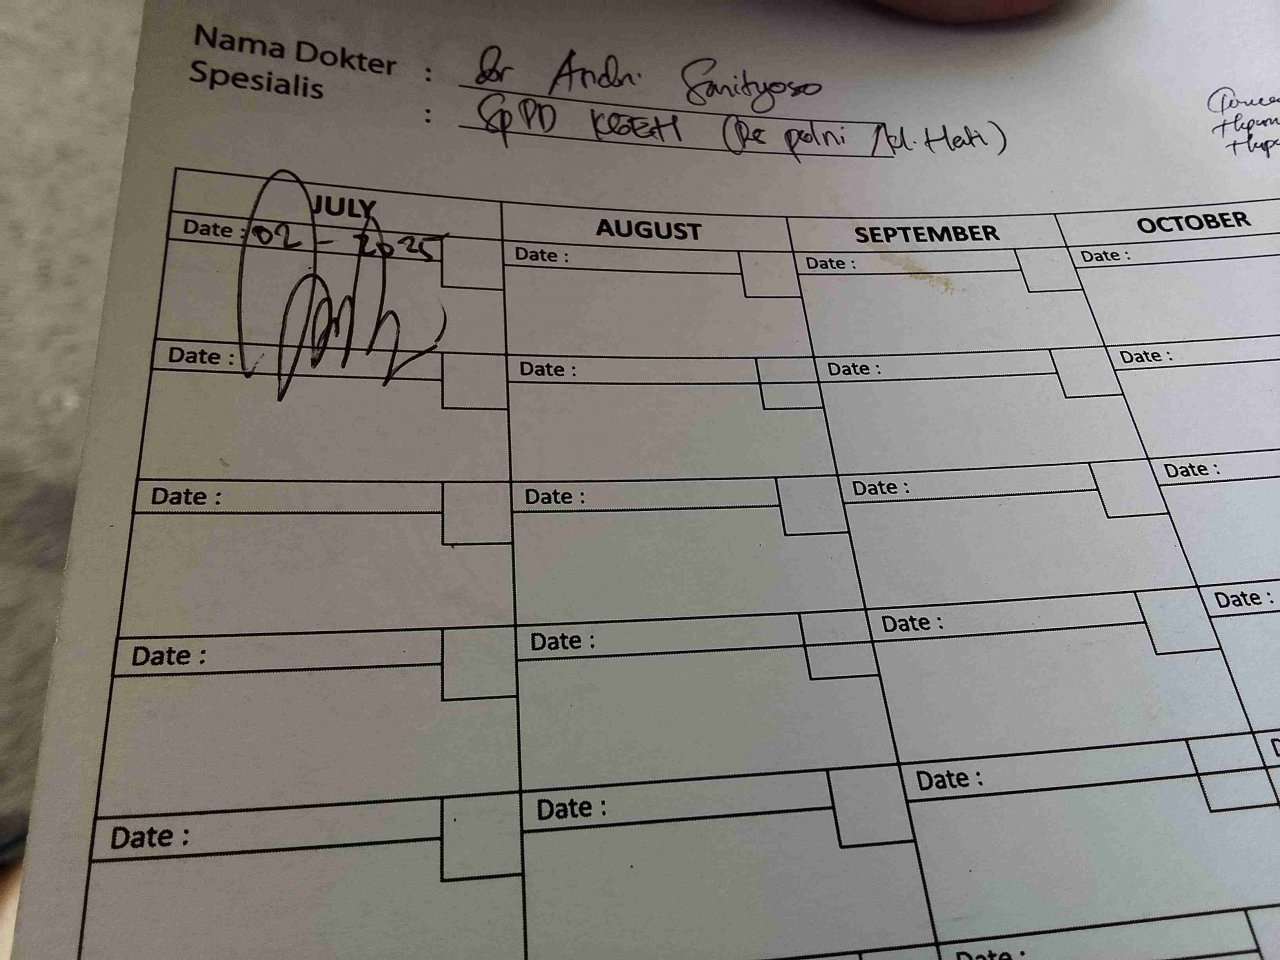 Nama Dokter : dr Andri Sanityoso
Spesialis : SpPD KGEH (RS polri / kl. Hati)
JULY AUGUST SEPTEMBER OCTOBER
Date : 02 - 2025 Date : Date : Date :
Date : Date : Date : Date :
Date : Date : Date : Date :
Date : Date : Date : Date :
Date : Date : Date :
Date :